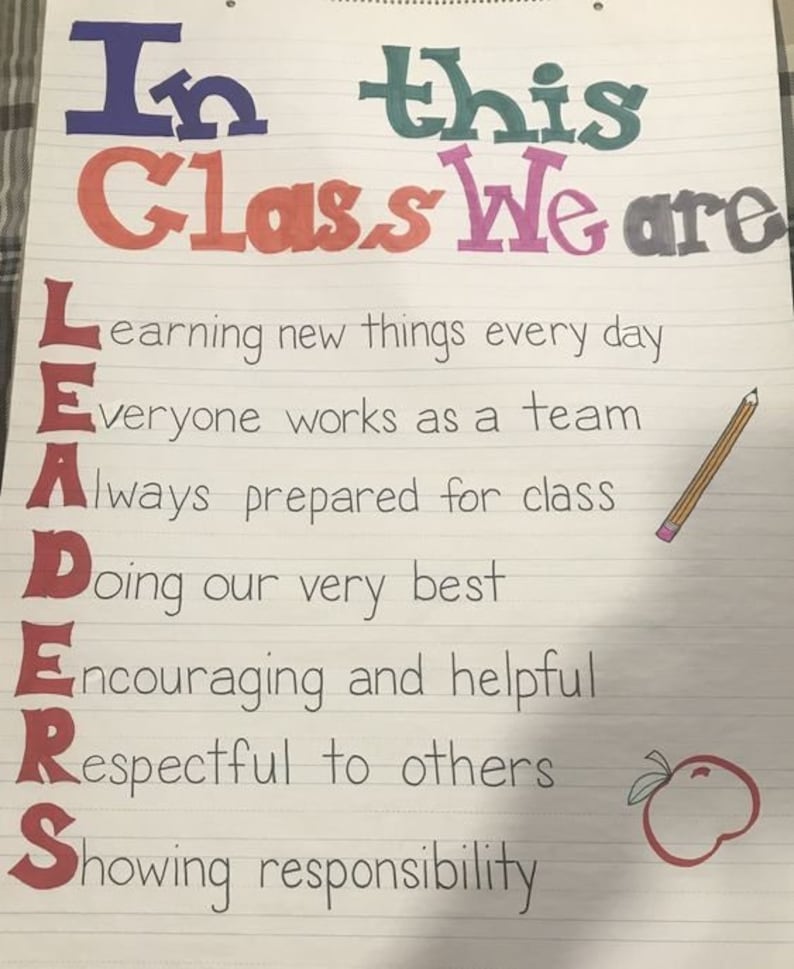 In this
Class We are
Learning new things every day
Everyone works as a team
Always prepared for class
Doing our very best
Encouraging and helpful
Respectful to others
Showing responsibility